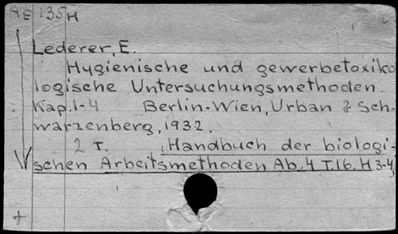 AE 135H
Lederer, E.
Hygienische und gewerbetoxiko
logische Untersuchungsmethoden.
Kap.1-4 Berlin-Wien, Urban & Sch-
warzenberg, 1932.
2 T. (Handbuch der biologi-
schen Arbeitsmethoden Ab.4 T.16. H 3-4)
+